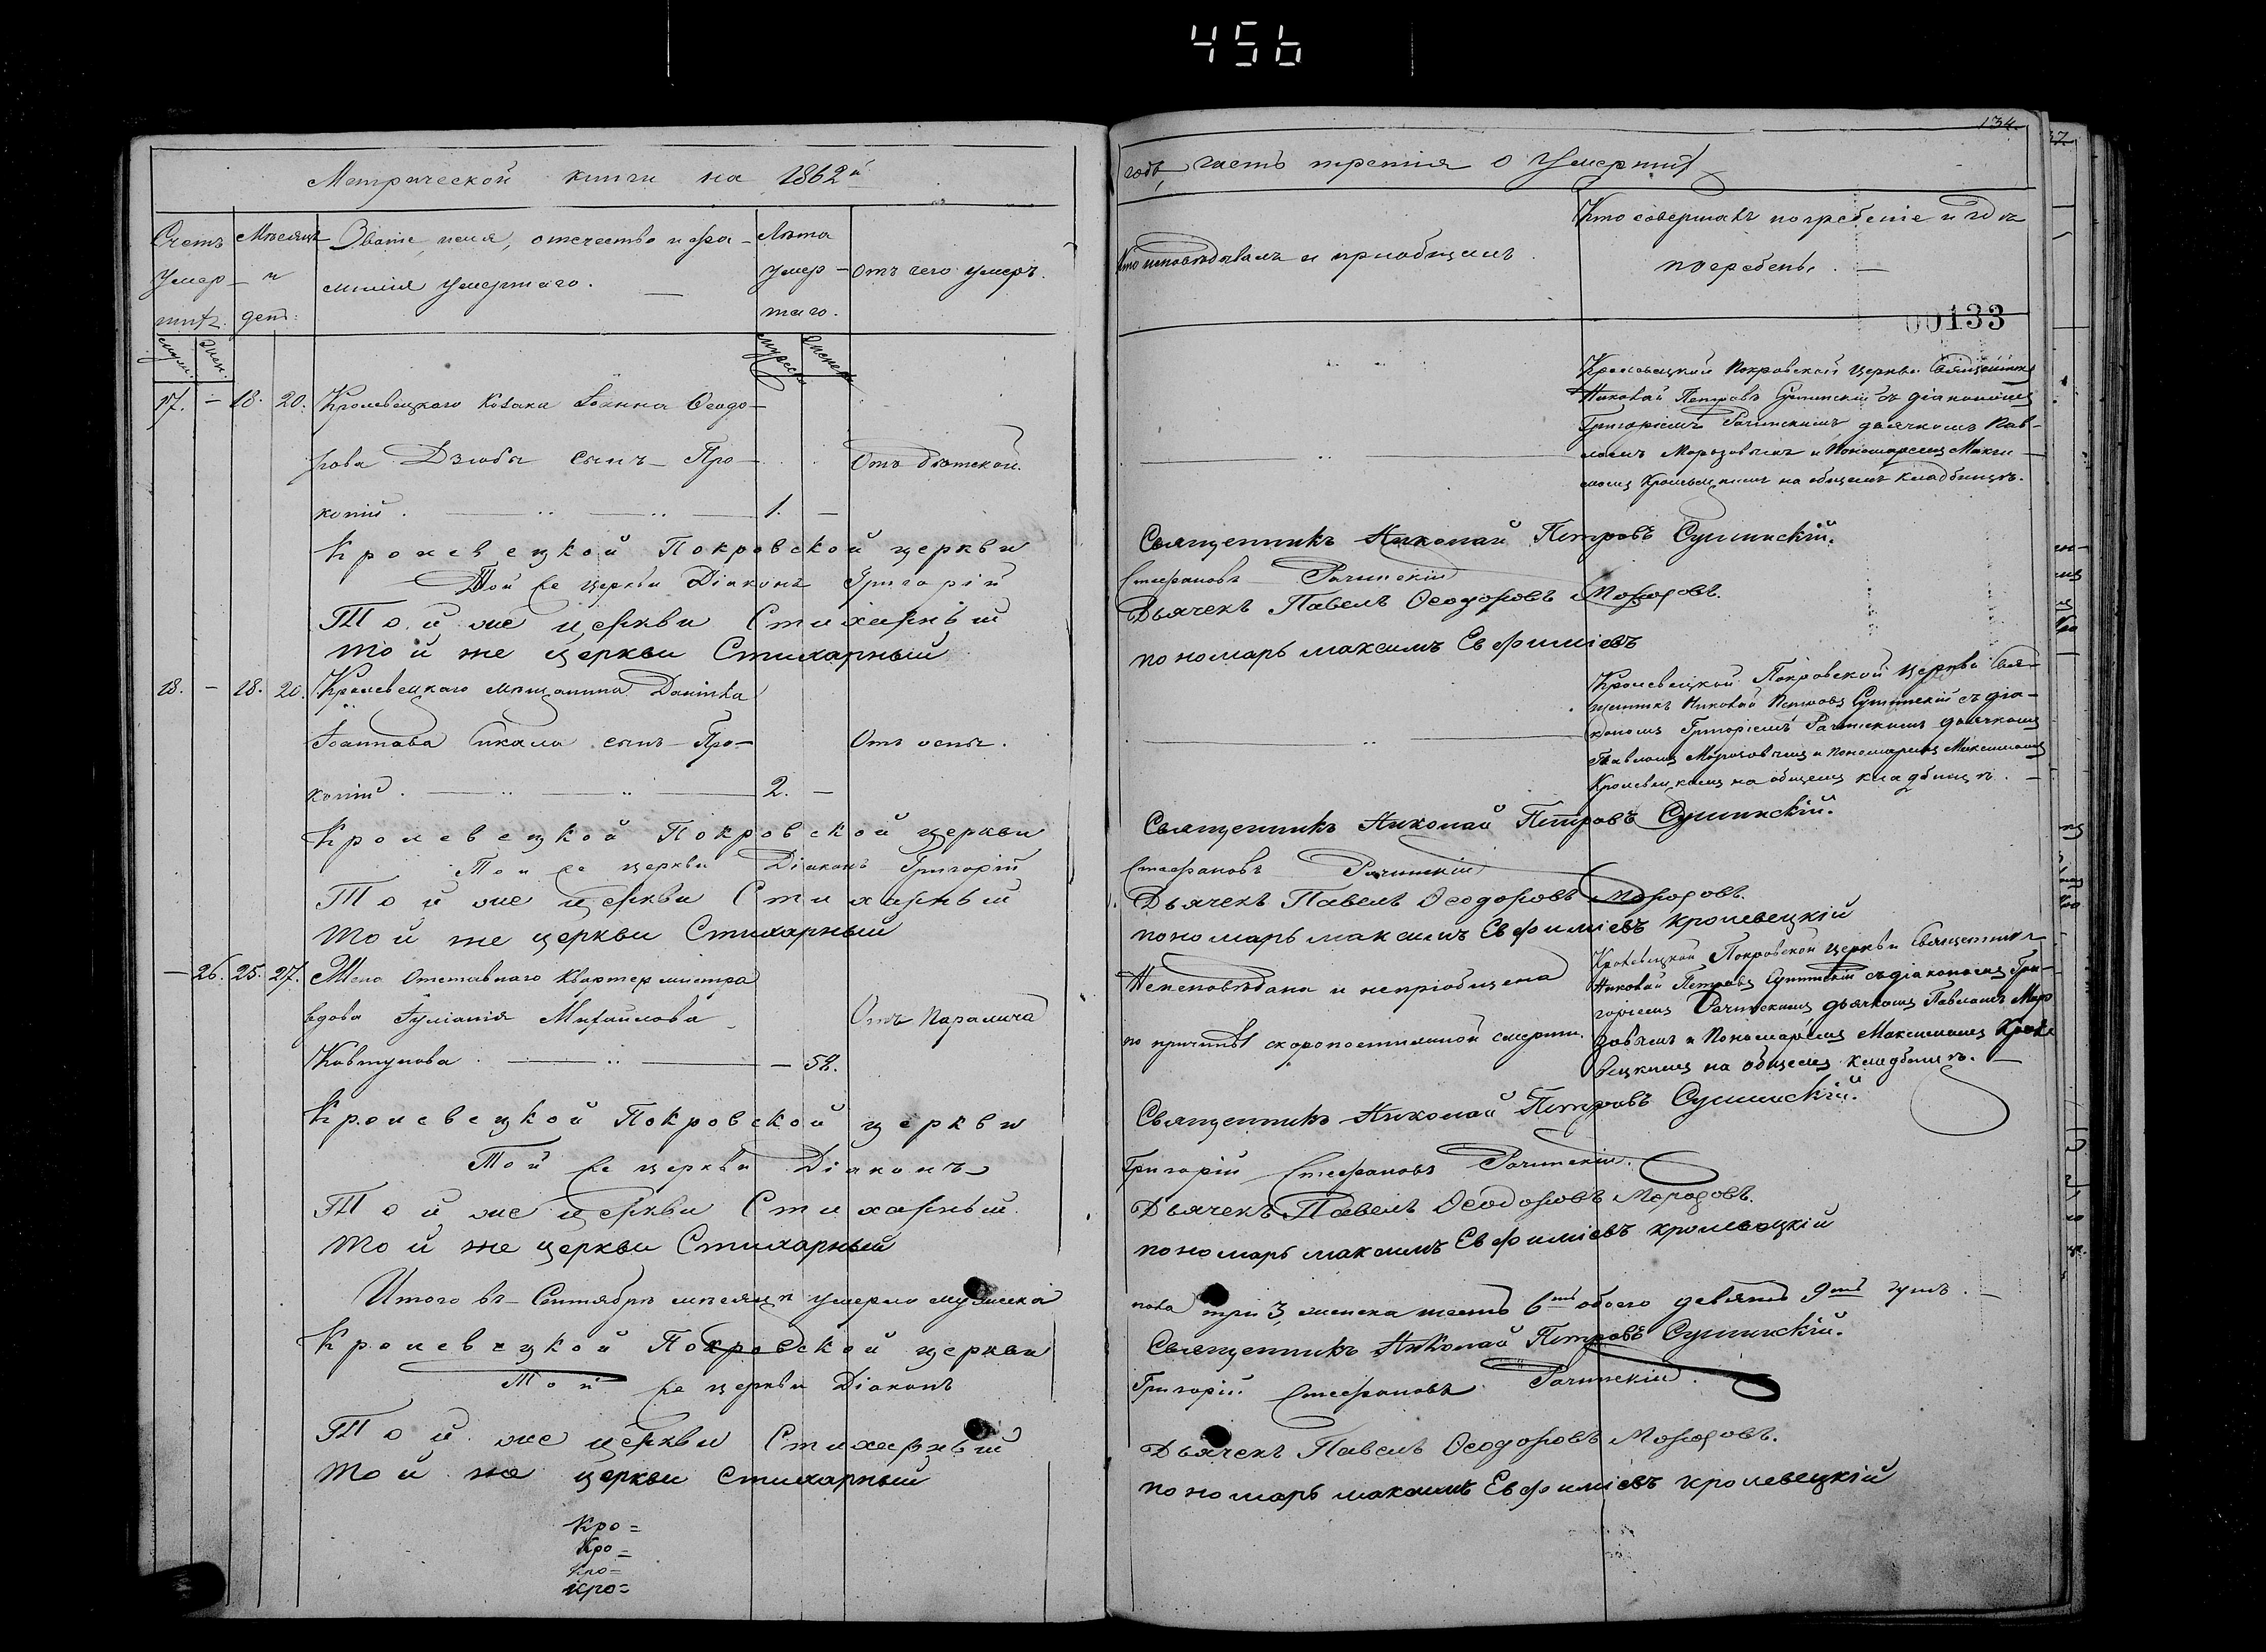 456
134.
Метрической книги на 1862й
годъ, часть третія о умершихъ
Счетъ умершихъ.
Мѣсяцъ и день:
Званіе, имя, отечество и фамилія умершаго.
Лѣта умершаго.
Отъ чего умеръ.
Кто исповѣдывалъ и пріобщалъ.
Кто совершалъ погребеніе и гдѣ
погребены.
00133
Мужес. Женск.
17. – 18. 20. Кролевецкого козака Іоанна Ѳеодо-
рова Дзюбы сынъ Про-
копій. 1. –
Отъ дѣтской.
Кролевецкой Покровской церкви Священникъ
Николай Петровъ Сушинскій съ діакономъ
Григоріемъ Рачинскимъ дьячкомъ Пав-
ломъ Морозовымъ и Пономаремъ Макси-
момъ Кролевецкимъ на общемъ кладбищѣ.
Кролевецкой Покровской церкви Священникъ Николай Петровъ Сушинскій.
Той же церкви Діаконъ Григорій Стефановъ Рачинскій
Той же церкви Стихарный Дьячекъ Павелъ Ѳеодоровъ Морозовъ.
той же церкви Стихарный пономарь максимъ Евфиміевъ
18. – 18. 20. Кролевецкаго мѣщанина Даніила
Іоаннова сынъ Про-
копій. 2. –
Отъ оспы.
Кролевецкой Покровской церкви Свя-
щенникъ Николай Петровъ Сушинскій съ діа-
кономъ Григоріемъ Рачинскимъ дьячкомъ
Павломъ Морозовымъ и Пономаремъ Максимомъ
Кролевецкимъ на общемъ кладбищѣ. –
Кролевецкой Покровской церкви Священникъ Николай Петровъ Сушинскій.
Той же церкви Діаконъ Григорій Стефановъ Рачинскій
Той же церкви Стихарный Дьячекъ Павелъ Ѳеодоровъ Морозовъ.
той же церкви Стихарный пономарь максимъ Евфиміевъ кролевецкій
– 26. 25. 27. Жена Отставного Квартермистра
вдова Іуліанія Михайлова
Ковтунова – 52.
Отъ Паралича
Неисповѣдана и непріобщена
по причинѣ скоропостижной смерти.
Кролевецкой Покровской церкви Священникъ
Николай Петровъ Сушинскій съ діакономъ Гри-
горіемъ Рачинскимъ, дьячкомъ Павломъ Моро
зовымъ и Пономаремъ Максимомъ Кроле
вецкимъ на общемъ кладбищѣ. –
Кролевецкой Покровской церкви Священникъ Николай Петровъ Сушинскій.
Той же церкви Діаконъ Григорій Стефановъ Рачинскій.
Той же церкви Стихарный Дьячекъ Павелъ Ѳеодоровъ Морозовъ.
той же церкви Стихарный пономарь максимъ Евфиміевъ кролевецкій
Итого въ Сентябрѣ мѣсяцѣ умерло мужеска пола три 3, женска шесть 6ть обоего девять 9ть душъ. –
Кролевецкой Покровской церкви Священникъ Николай Петровъ Сушинскій.
Той же церкви Діаконъ Григорій Стефановъ Рачинскій.
Той же церкви Стихарный Дьячекъ Павелъ Ѳеодоровъ Морозовъ.
той же церкви Стихарный пономарь максимъ Евфиміевъ кролевецкій
Кро=
Кро=
Кро=
кро=